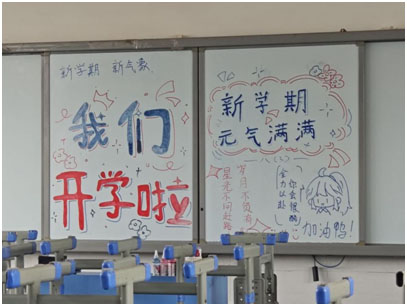 新学期 新气象
我们
开学啦
新学期
元气满满
八(1)
岁月不负有
星光不问赶路
全力以赴
你会很酷
加油鸭!